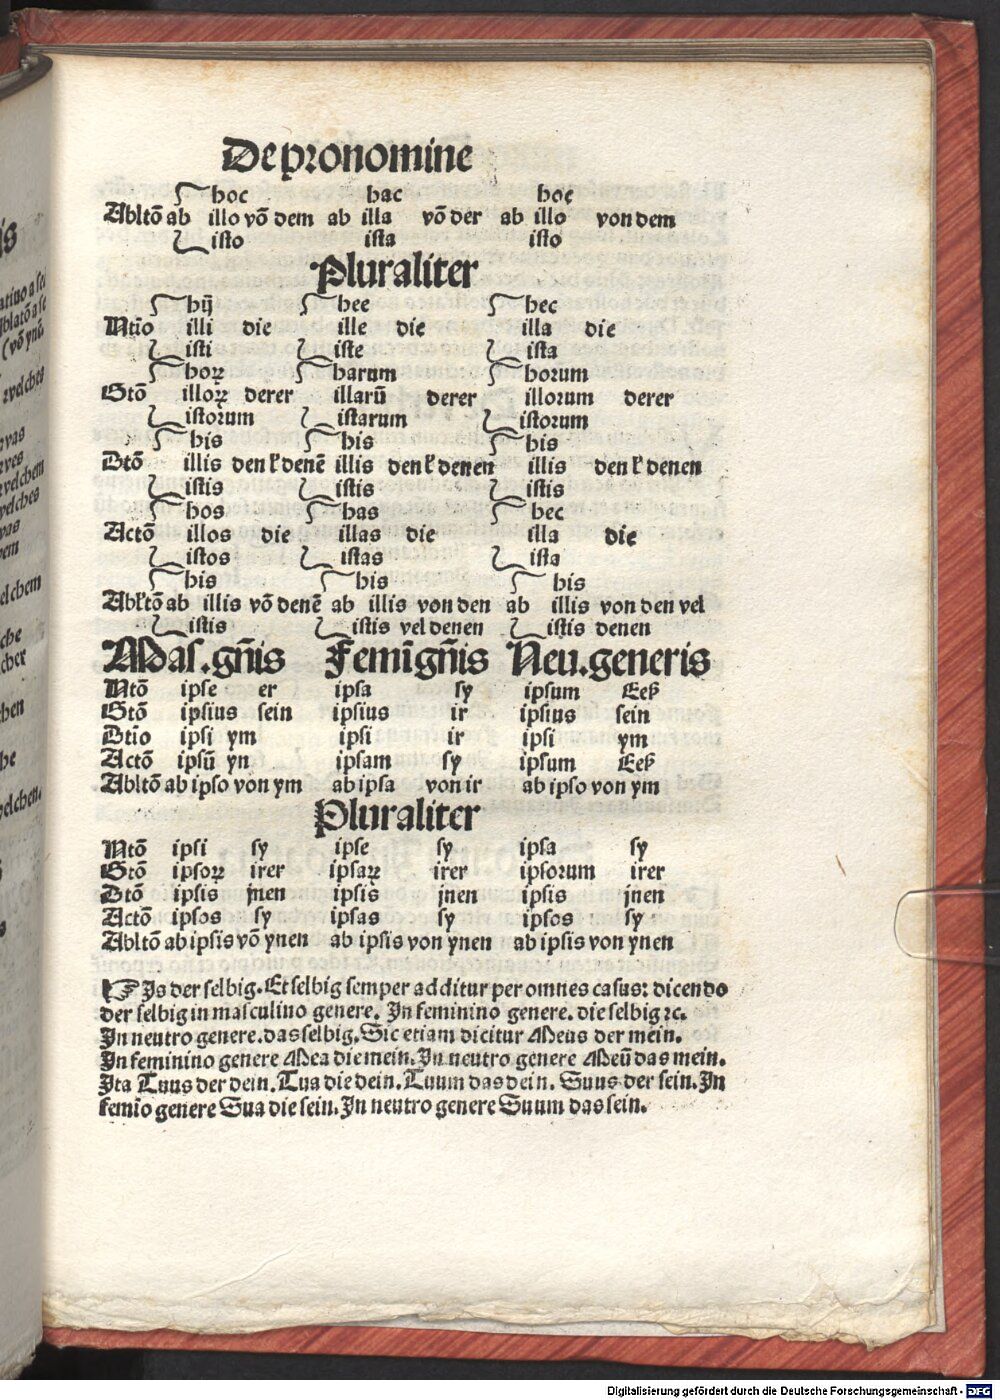 De pronomine
hoc hac hoc
Abltō ab illo vō dem ab illa vō der ab illo von dem
isto ista isto
Pluraliter
hij hee hec
Ntio illi die ille die illa die
isti iste ista
horꝝ harum horum
Gtō illorꝝ derer illarū derer illorum derer
istorum istarum istorum
his his his
Dtō illis den ł denē illis den ł denen illis den ł denen
istis istis istis
hos has hec
Actō illos die illas die illa die
istos istas ista
his his his
Abltō ab illis vō denē ab illis von den ab illis von den vel
istis istis vel denen istis denen
Mas.gn̄is Femī gn̄is Neu.generis
Ntō ipse er ipsa sy ipsum Eeß
Gtō ipsius sein ipsius ir ipsius sein
Dtio ipsi ym ipsi ir ipsi ym
Actō ipsū yn ipsam sy ipsum Eeß
Abltō ab ipso von ym ab ipsa von ir ab ipso von ym
Pluraliter
Ntō ipsi sy ipse sy ipsa sy
Gtō ipsoꝝ irer ipsaꝝ irer ipsorum irer
Dtō ipsis jnen ipsis jnen ipsis jnen
Actō ipsos sy ipsas sy ipsos sy
Abltō ab ipsis vō ynen ab ipsis von ynen ab ipsis von ynen
☞ Is der selbig. Et selbig semper additur per omnes casus: dicendo
der selbig in masculino genere. In feminino genere. die selbig ꝛc.
In neutro genere. das selbig. Sic etiam dicitur Meus der mein.
In feminino genere Mea die mein. In neutro genere Meū das mein.
Ita Tuus der dein. Tua die dein. Tuum das dein. Suus der sein. In
femīo genere Sua die sein. In neutro genere Suum das sein.
Digitalisierung gefördert durch die Deutsche Forschungsgemeinschaft - DFG